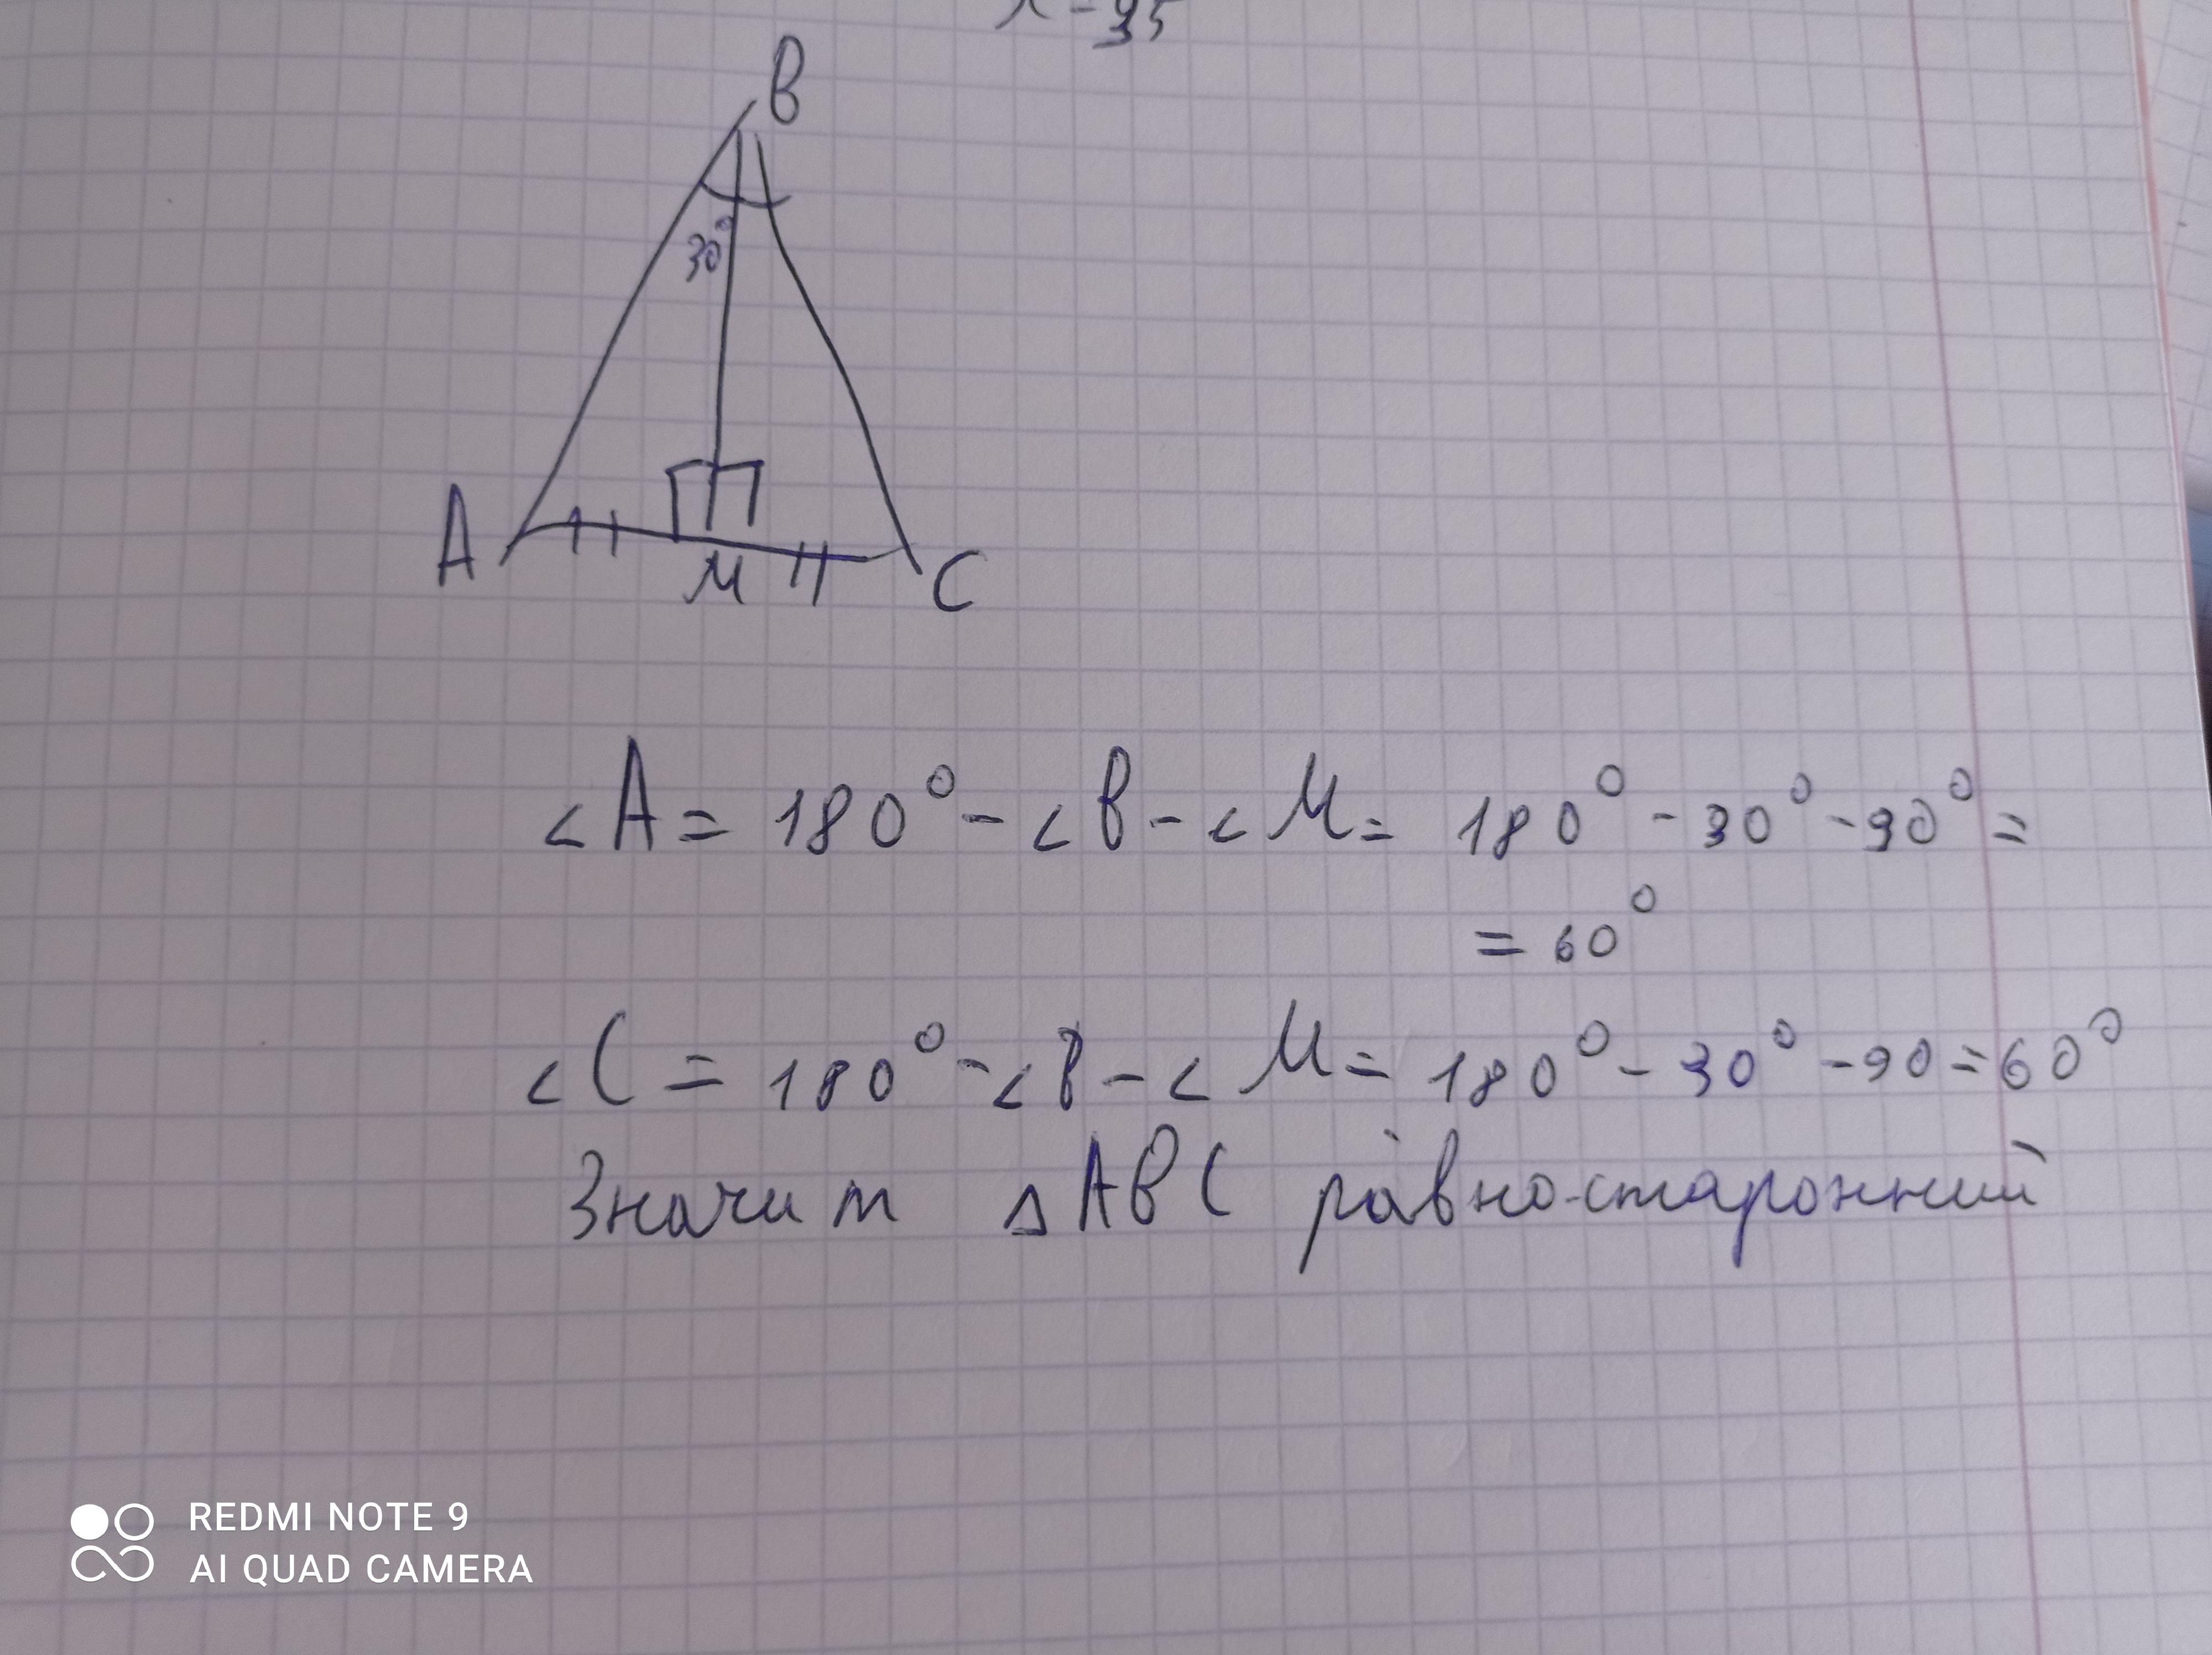 x = 35
B
30°
A
M
C
∠A = 180° - ∠B - ∠M = 180° - 30° - 90° =
= 60°
∠C = 180° - ∠B - ∠M = 180° - 30° - 90 = 60°
Значит △ABC равно-старонний
REDMI NOTE 9
AI QUAD CAMERA